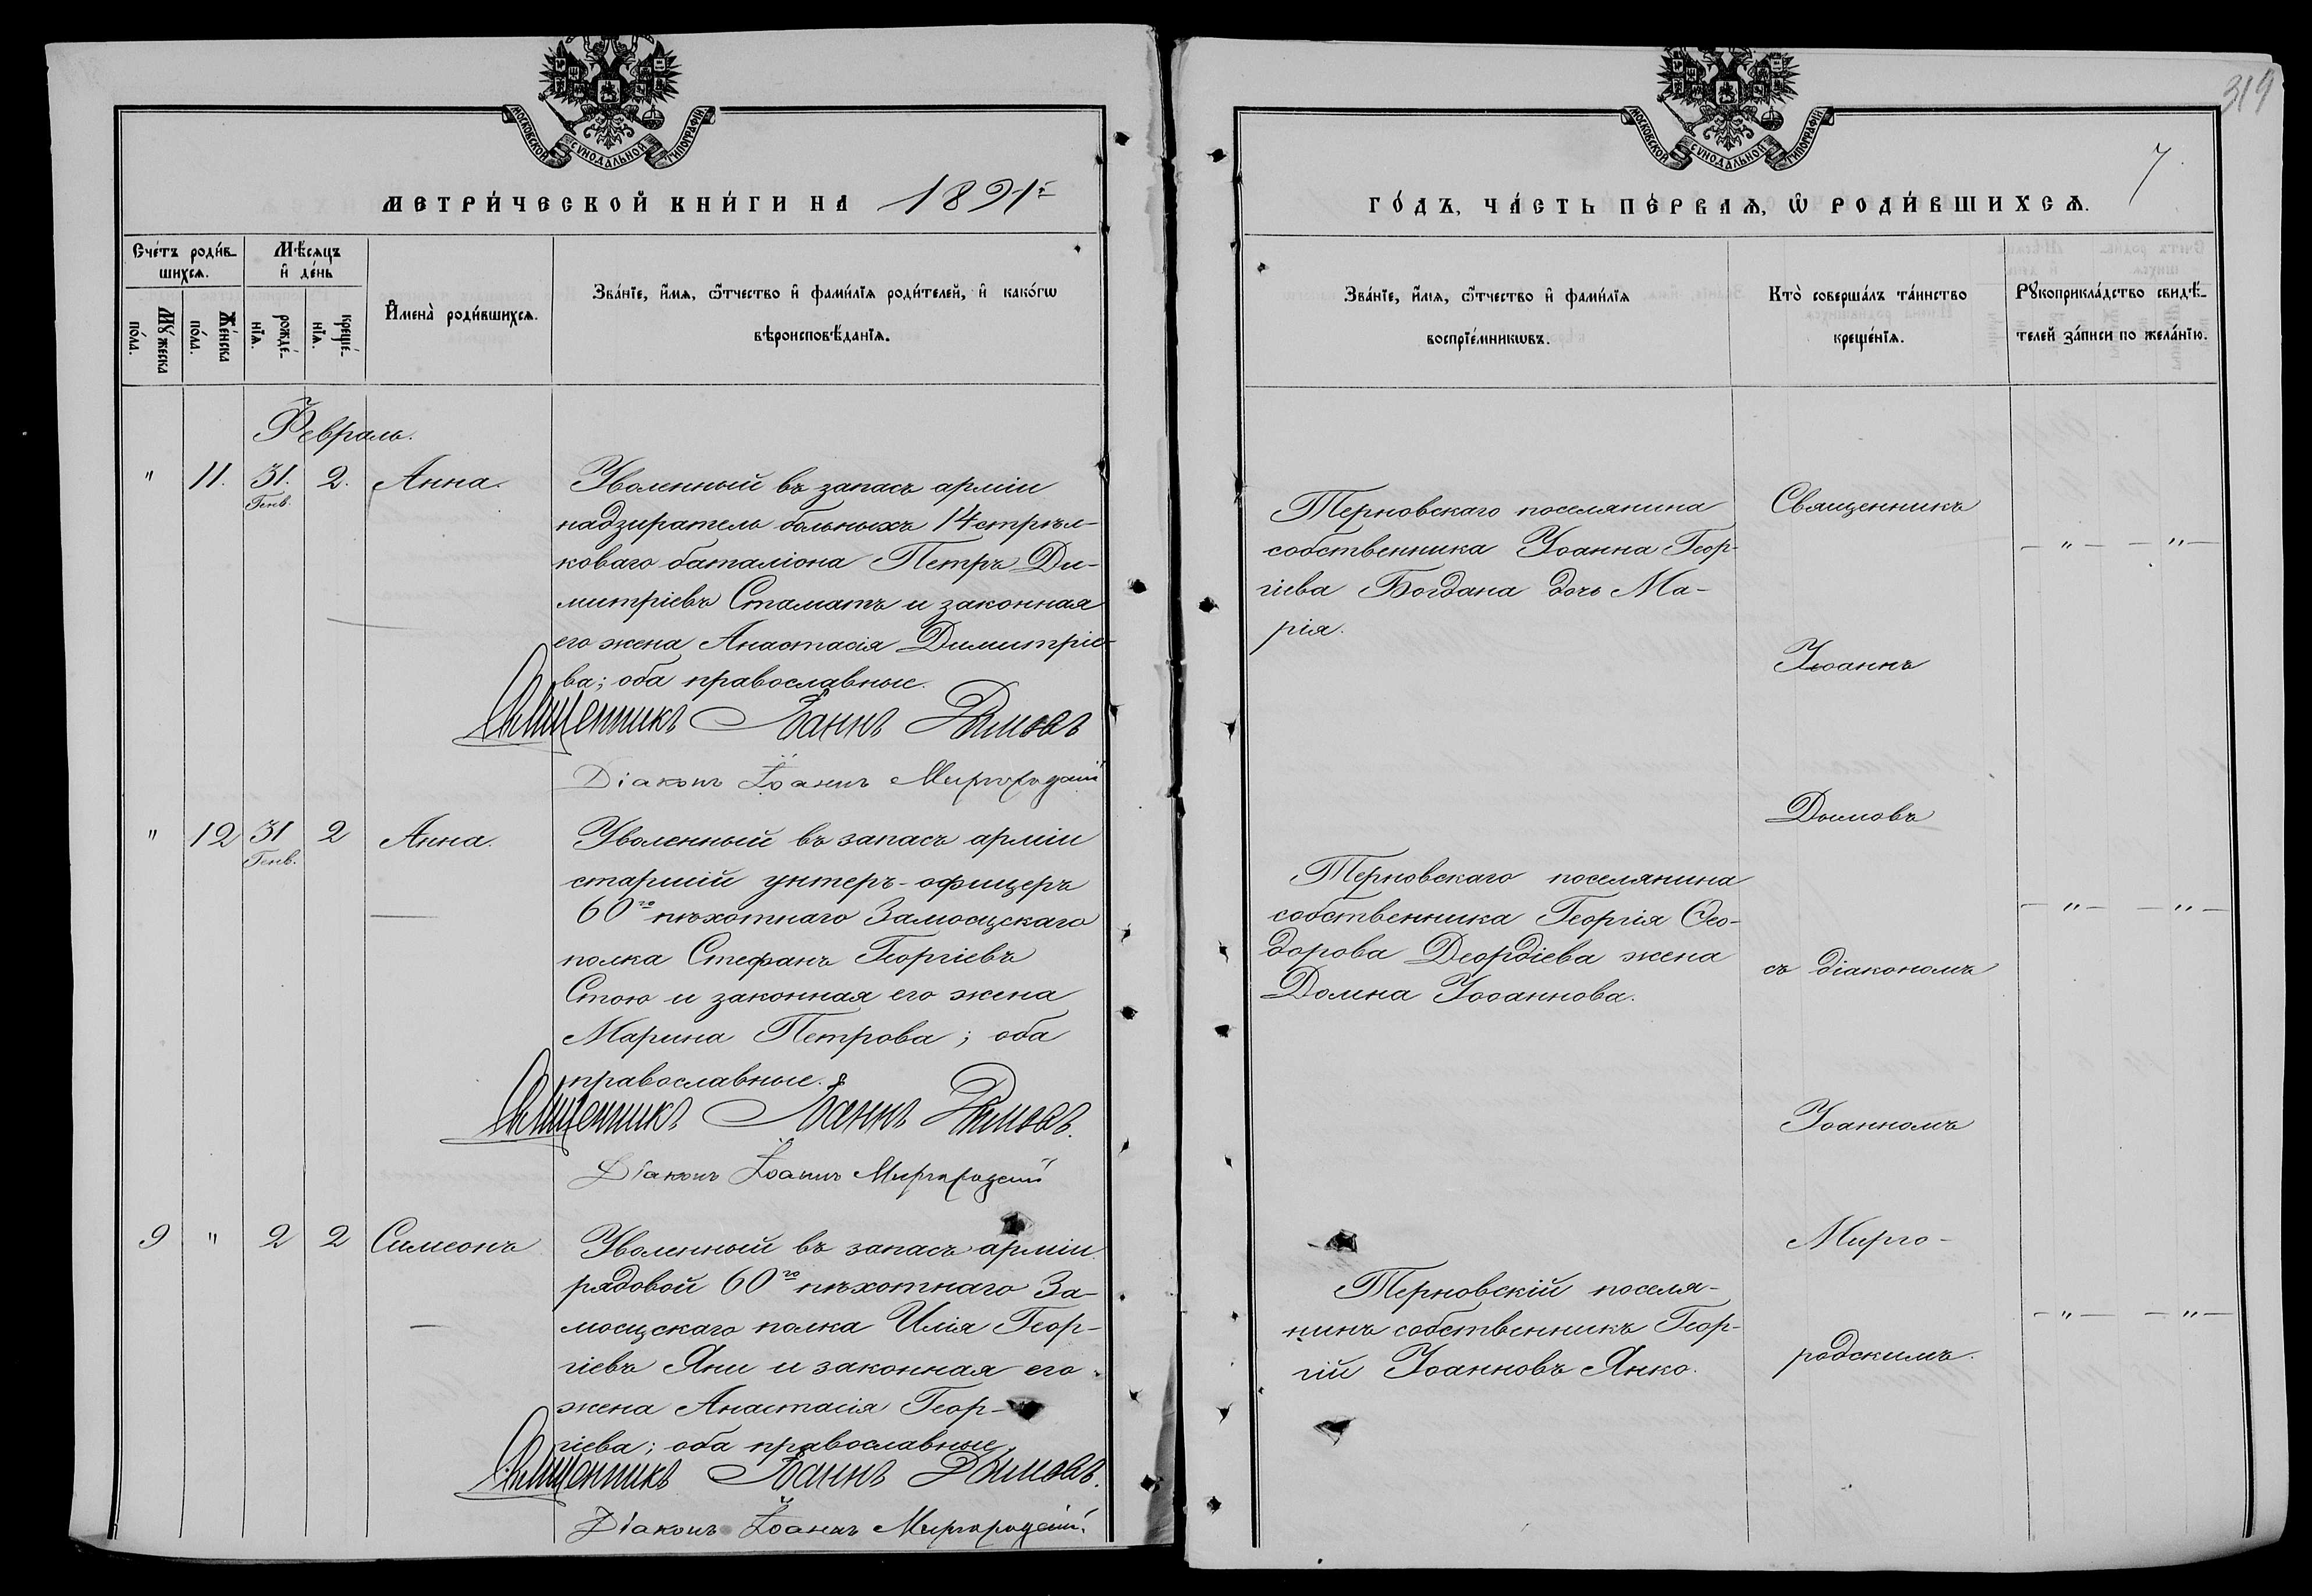 МОСКОВСКОЙ СѴНОДАЛЬНОЙ ТИПОГРАФІИ
МЕТРИ́ЧЕСКОЙ КНИ́ГИ НА 1891 г.
Сче́тъ роди́в-
шихсѧ.
Мѣ́сѧцъ
и҆ де́нь
Мꙋ́жеска
по́ла.
Же́нска
по́ла.
рожде́-
нїѧ.
креще́-
нїѧ.
И҆мена̀ роди́вшихсѧ.
Зва́нїе, и҆́мѧ, ѻ҆́тчество и҆ фами́лїѧ роди́телей, и҆ како́гѡ
вѣроисповѣ́данїѧ.
Февраль.
" 11. 31. 2. Анна.
Генв.
Уволенный въ запасъ арміи
надзиратель больныхъ 14 стрѣл-
коваго баталіона Петръ Ди-
митріевъ Стаматъ и законная
его жена Анастасія Димитріе-
ва; оба православные.
Священникъ Іоаннъ Дымовъ
Діаконъ Іоаннъ Миргородскій
" 12 31 2 Анна.
Генв.
Уволенный въ запасъ арміи
старшій унтеръ-офицеръ
60го пѣхотнаго Замосцскаго
полка Стефанъ Георгіевъ
Стою и законная его жена
Марина Петрова; оба
православные.
Священникъ Іоаннъ Дымовъ.
Діаконъ Іоаннъ Миргородскій
9 " 2 2 Симеонъ
Уволенный въ запасъ арміи
рядовой 60го пѣхотнаго За-
мосцскаго полка Илія Геор-
гіевъ Яни и законная его
жена Анастасія Геор-
гіева; оба православные.
Священникъ Іоаннъ Дымовъ.
Діаконъ Іоаннъ Миргородскій.
319
МОСКОВСКОЙ СѴНОДАЛЬНОЙ ТИПОГРАФІИ
7
ГО́ДЪ, ЧА́СТЬ ПЕ́РВАѦ, Ѡ҆ РОДИ́ВШИХСѦ.
Зва́нїе, и҆́мѧ, ѻ҆́тчество и҆ фами́лїѧ
воспрїе́мникѡвъ.
Кто̀ соверша́лъ та́инство
креще́нїѧ.
Рꙋкоприкла́дство свидѣ́-
телей за́писи по жела́нїю.
Терновскаго поселянина
собственника Іоанна Геор-
гіева Богдана дочь Ма-
рія.
Священникъ
Іоаннъ
Дымовъ
— " — — " —
Терновскаго поселянина
собственника Георгія Ѳео-
дорова Деордіева жена
Домна Іоаннова.
съ діакономъ
Іоанномъ
— " — — " —
Терновскій поселя-
нинъ собственникъ Геор-
гій Іоанновъ Янко.
Мирго-
родскимъ.
— " — — " —